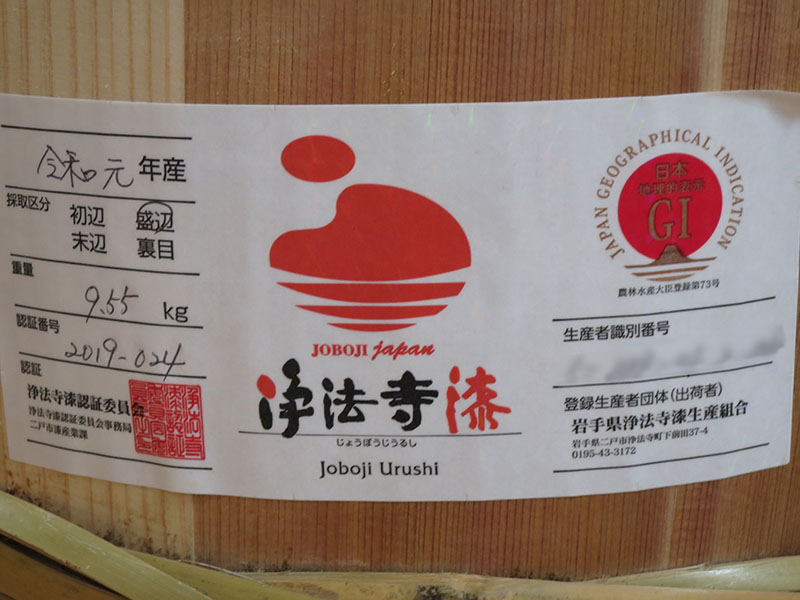 令和元年産
採取区分
初辺 盛辺
末辺 裏目
重量
9.55 kg
認証番号
2019-024
認証
浄法寺漆認証委員会
浄法寺漆認証委員会事務局
二戸市漆産業課
JOBOJI japan
浄法寺漆
じょうぼうじうるし
Joboji Urushi
JAPAN GEOGRAPHICAL INDICATION
日本
地理的表示
GI
農林水産大臣登録第73号
生産者識別番号
登録生産者団体(出荷者)
岩手県浄法寺漆生産組合
岩手県二戸市浄法寺町下前田37-4
0195-43-3172